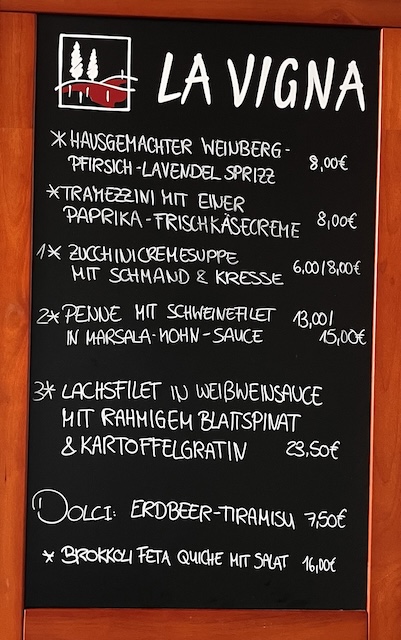 LA VIGNA
* HAUSGEMACHTER WEINBERG-
PFIRSICH-LAVENDEL SPRIZZ 8,00€
* TRAMEZZINI MIT EINER
PAPRIKA-FRISCHKÄSECREME 8,00€
1* ZUCCHINICREMESUPPE
MIT SCHMAND & KRESSE 6,00/8,00€
2* PENNE MIT SCHWEINEFILET 13,00/
IN MARSALA-MOHN-SAUCE 15,00€
3* LACHSFILET IN WEIßWEINSAUCE
MIT RAHMIGEM BLATTSPINAT
& KARTOFFELGRATIN 23,50€
DOLCI: ERDBEER-TIRAMISU 7,50€
* BROKKOLI FETA QUICHE MIT SALAT 16,00€